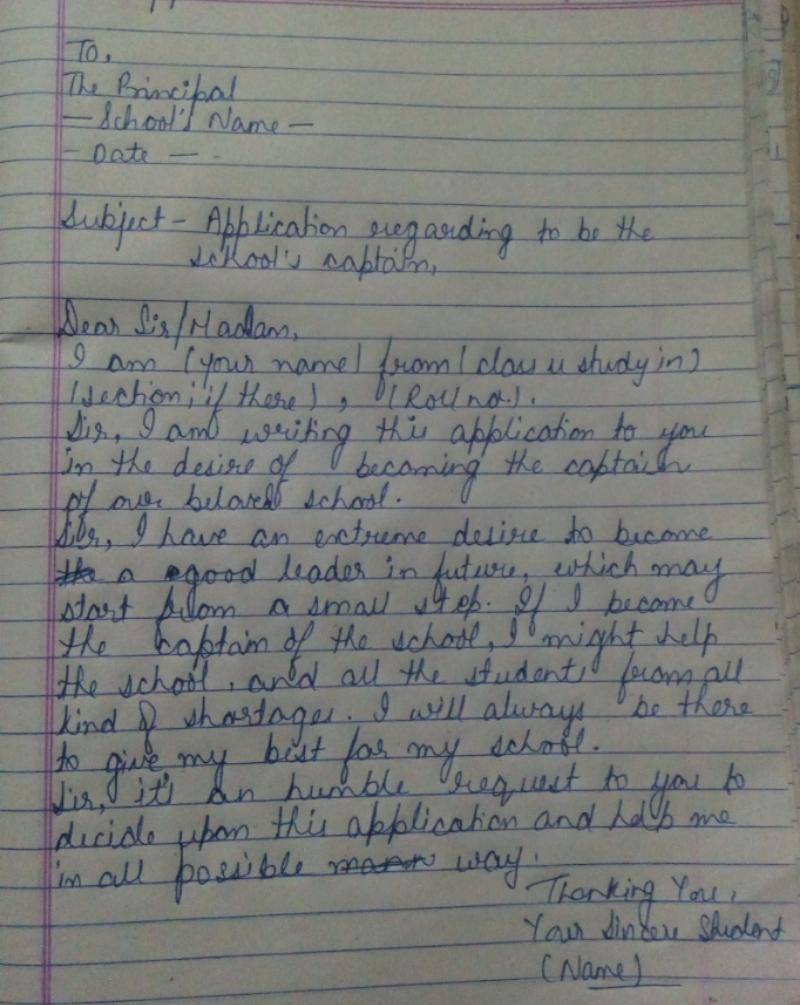 To,
The Principal
- School's Name -
- Date - -
Subject - Application regarding to be the
school's captain,
Dear Sir/Madam,
I am (your name) from (class u study in)
(section; if there), (Roll no.).
Sir, I am writing this application to you
in the desire of becoming the captain
of our beloved school.
Sir, I have an extreme desire to become
a good leader in future, which may
start from a small step. If I become
the captain of the school, I might help
the school, and all the students from all
kind of shortages. I will always be there
to give my best for my school.
Sir, it's an humble request to you to
decide upon this application and help me
in all possible way.
Thanking You,
Your Sincere Student
(Name)